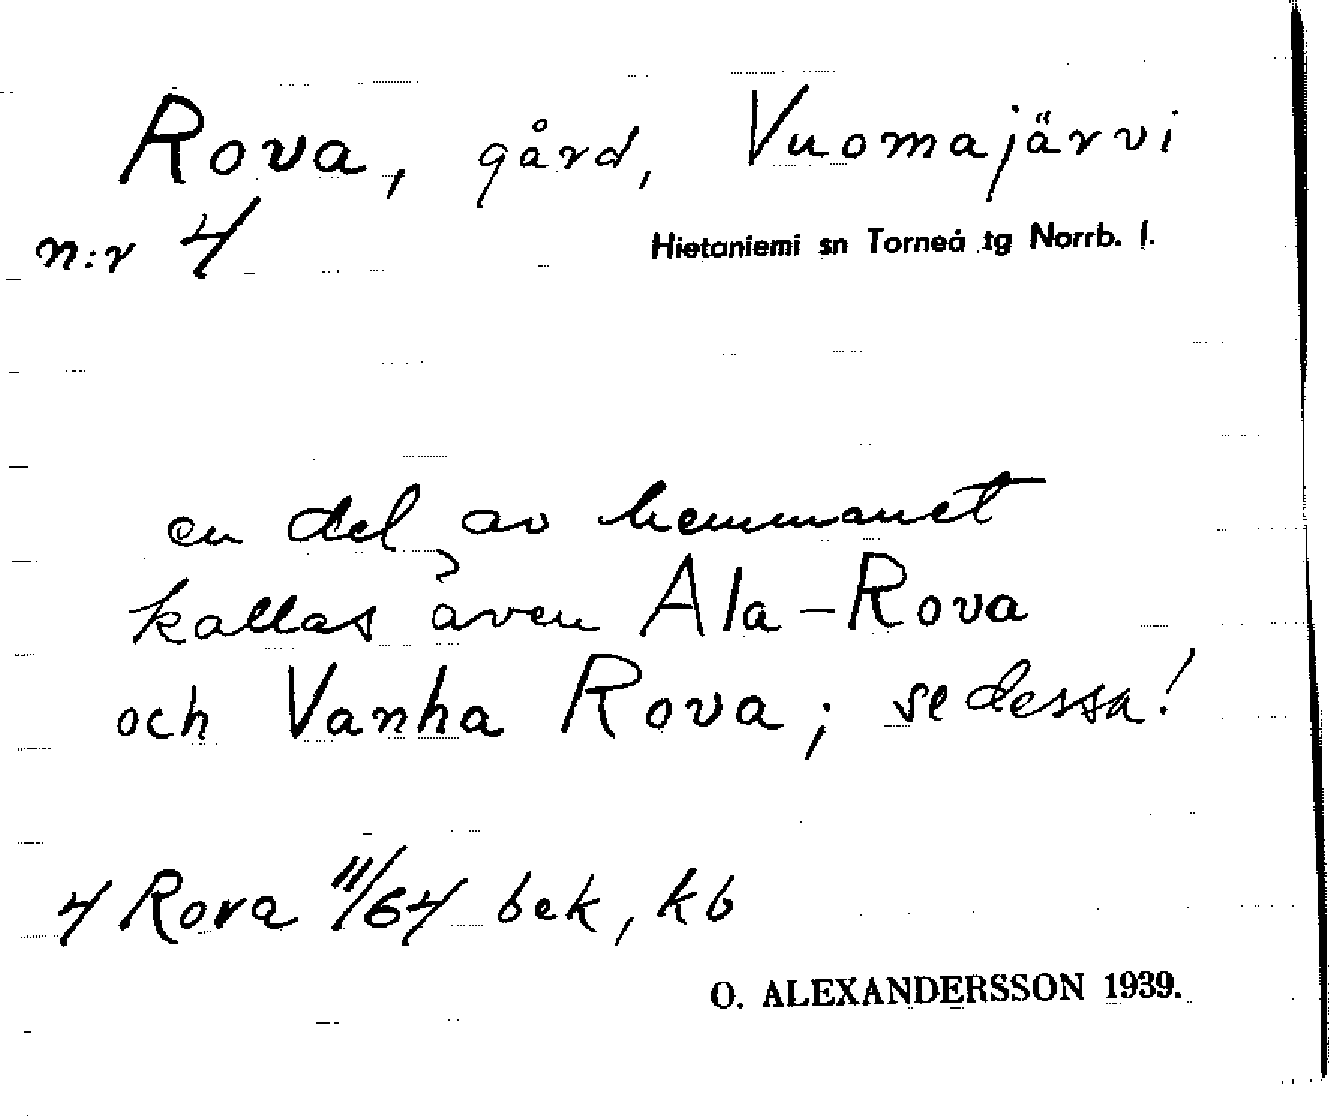 Rova, gård, Vuomajärvi
n:r 4
Hietaniemi sn Torneå tg Norrb. l.
en del av hemmanet
kallas även Ala-Rova
och Vanha Rova; se dessa!
4 Rova 11/64 bek, kb
O. ALEXANDERSSON 1939.